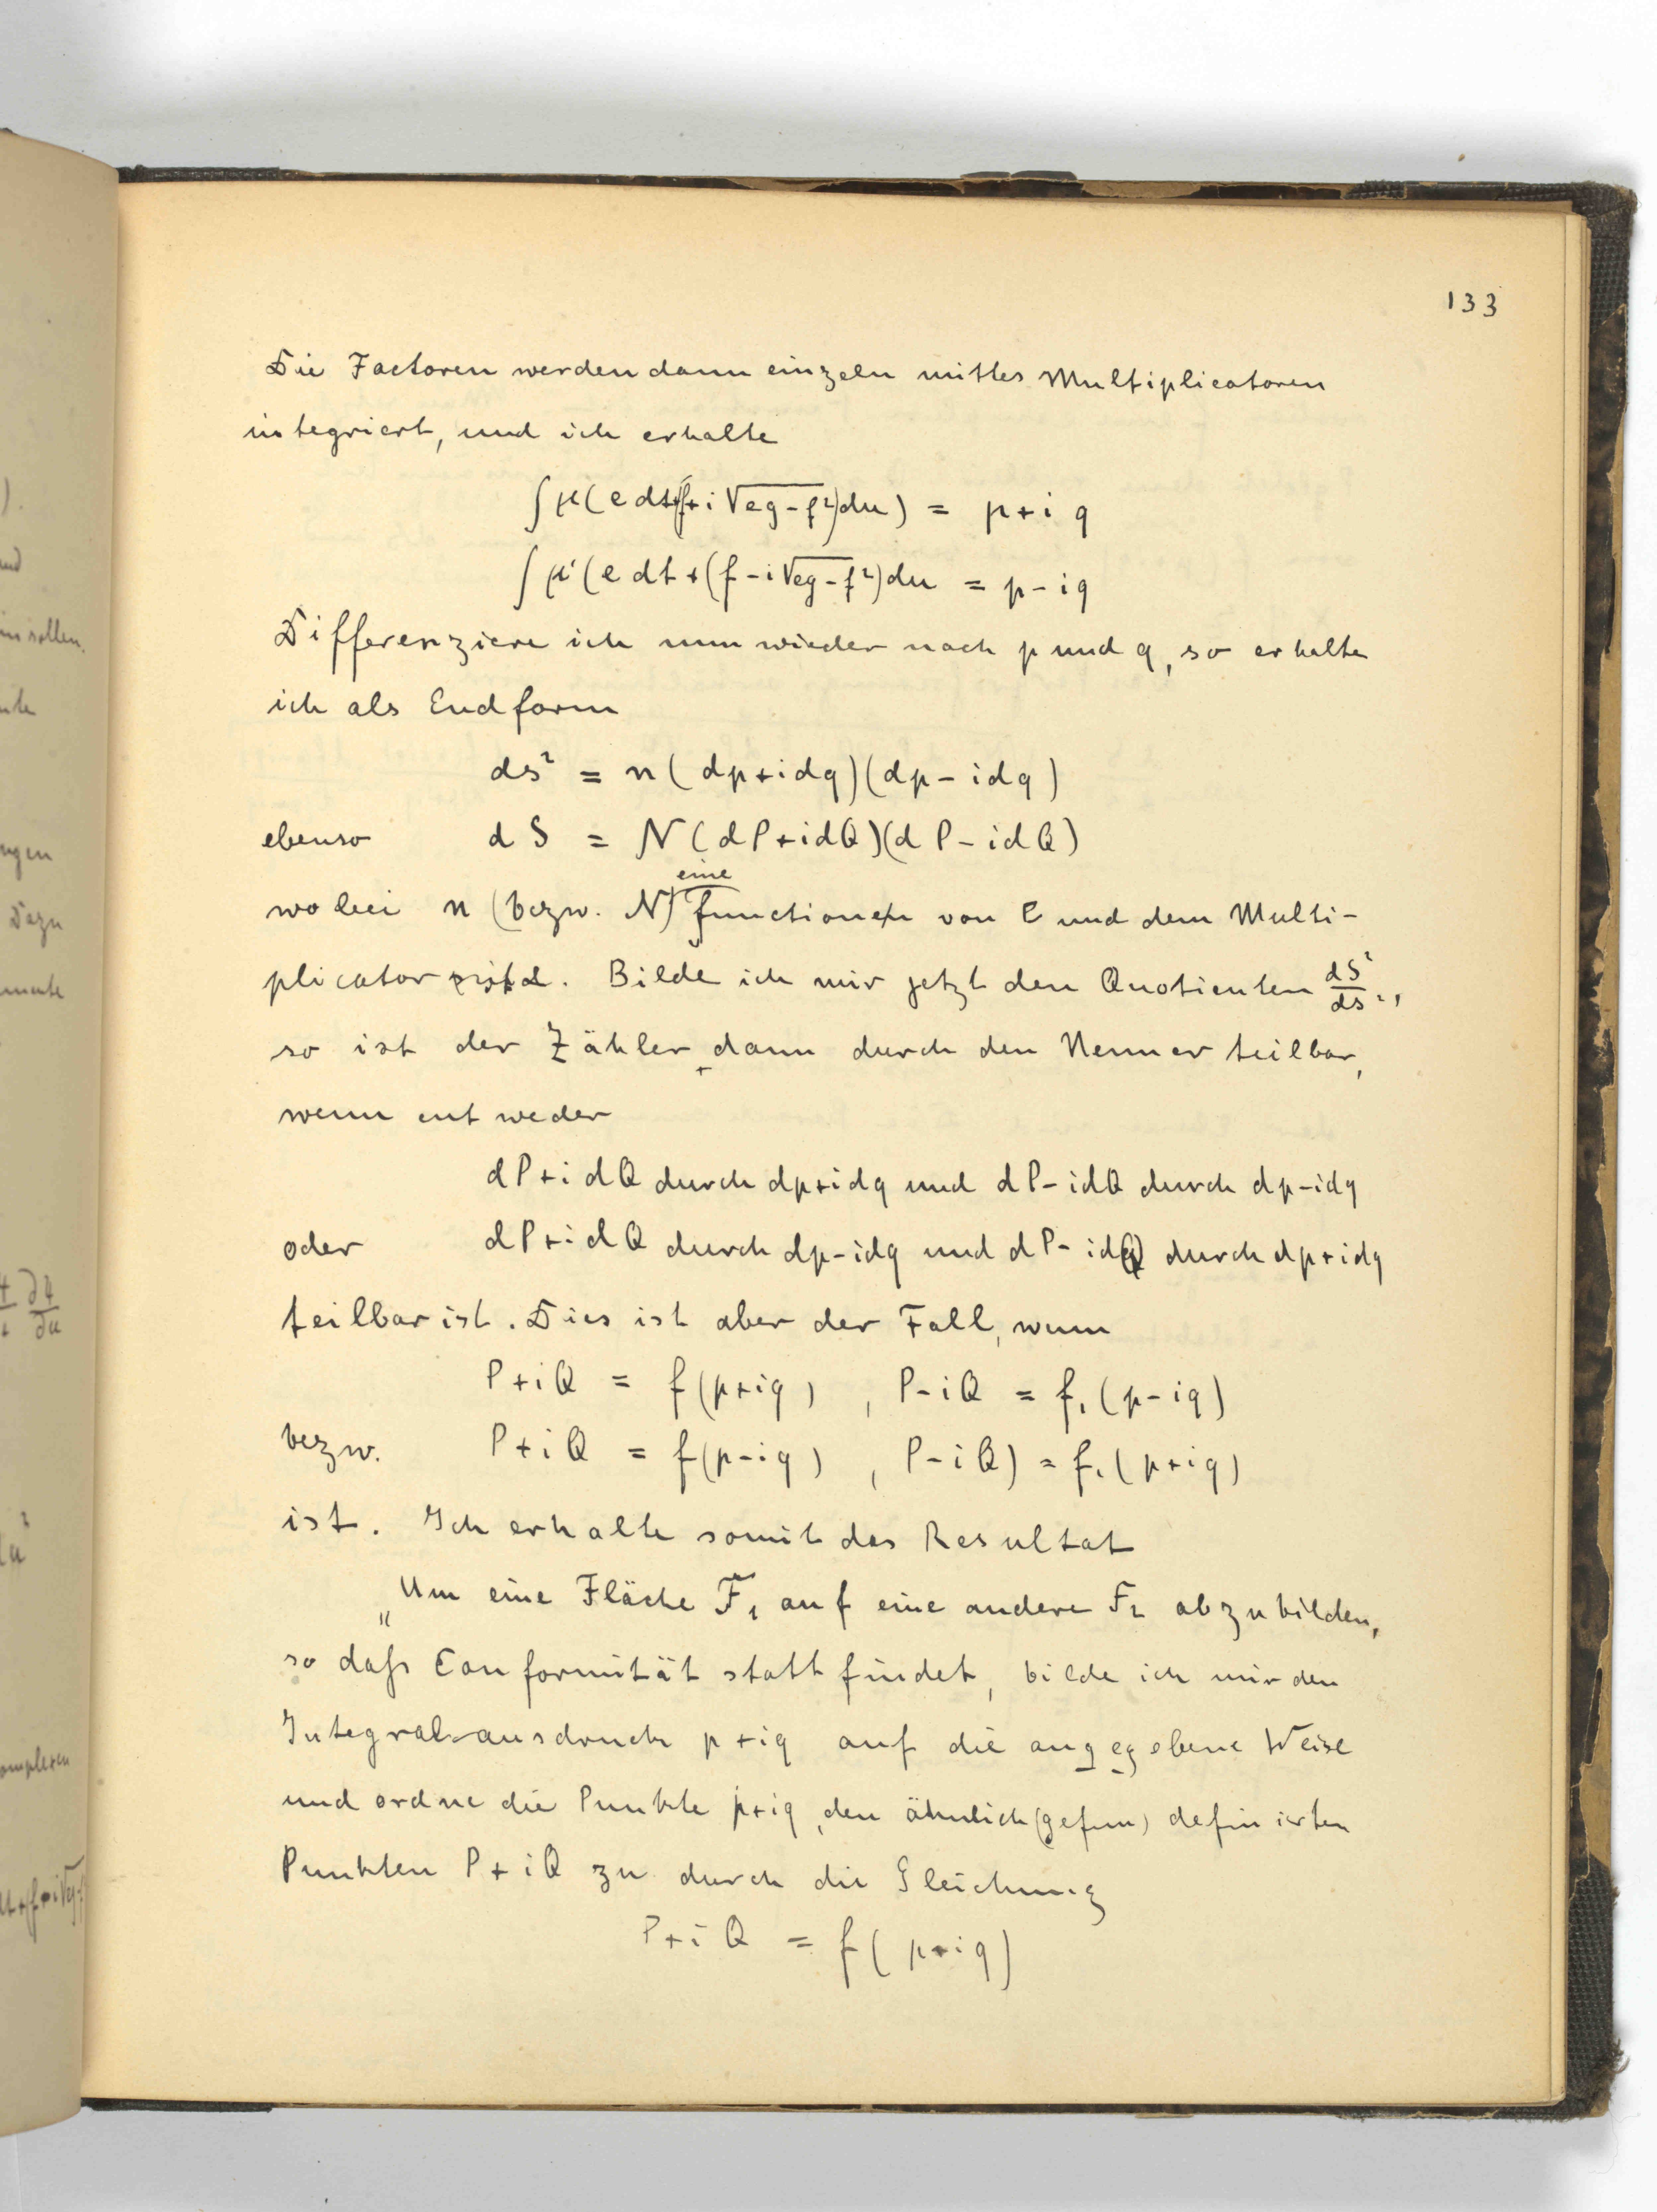 133
Die Factoren werden dann einzeln mittles Multiplicatoren
integriert, und ich erhalte
∫ μ(e dt+(f+i √eg-f²)du) = p+i q
∫ μ'(e dt+(f-i√eg-f²)du = p-iq
Differenziere ich nun wieder nach p und q, so erhalte
ich als Endform
ds² = n(dp+idq)(dp-idq)
ebenso dS = N(dP+idQ)(dP-idQ)
eine
wobei n (bezw. N) function von e und dem Multi-
plicator ist. Bilde ich mir jetzt den Quotienten dS²/ds²,
so ist der Zähler dann durch den Nenner teilbar,
wenn entweder
dP+idQ durch dp+idq und dP-idQ durch dp-idq
oder dP+idQ durch dp-idq und dP-idQ durch dp+idq
teilbar ist. Dies ist aber der Fall, wenn
P+iQ = f(p+iq) , P-iQ = f₁(p-iq)
bezw. P+iQ = f(p-iq) , P-iQ) = f₁(p+iq)
ist. Ich erhalte somit das Resultat
„Um eine Fläche F₁ auf eine andere F₂ abzubilden,
so daß Conformität stattfindet, bilde ich mir den
Integralausdruck p+iq auf die angegebene Weise
und ordne die Punkte p+iq, den ähnlich (gefun) definirten
Punkten P+iQ zu durch die Gleichung
P+iQ = f(p+iq)